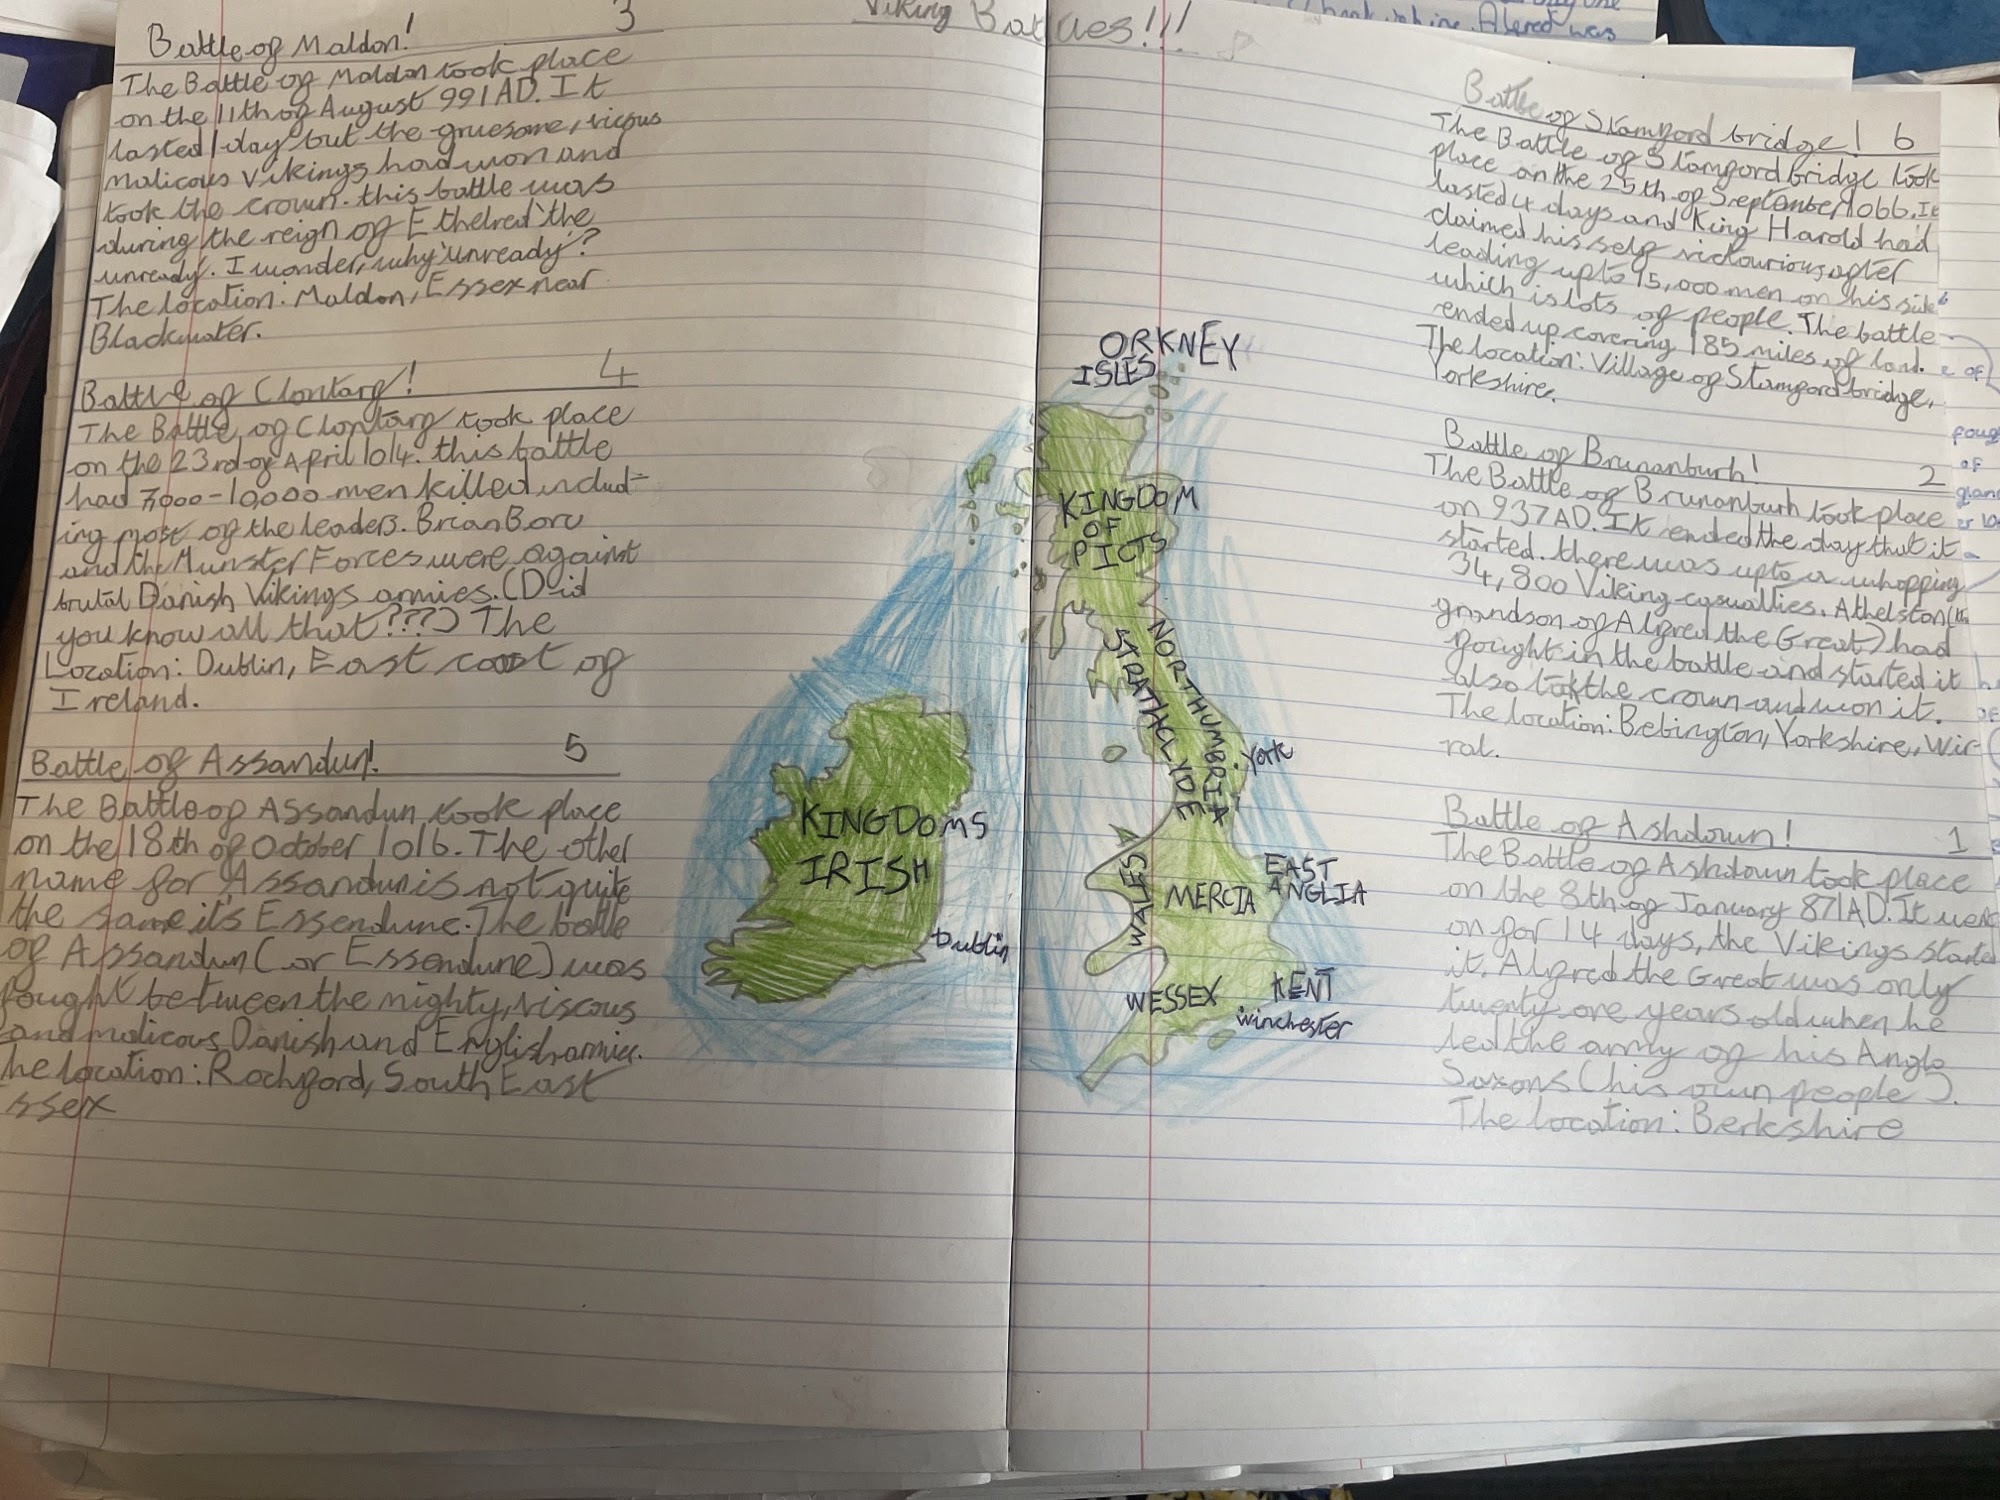 Viking Battles!!!
Battle of Maldon! 3
The Battle of Maldon took place
on the 11th of August 991AD. It
lasted 1 day but the gruesome, vicous
malicous Vikings had won and
took the crown. this battle was
during the reign of Ethelred the
unready. I wonder, why 'unready'?
The location: Maldon, Essex near
Blackwater.
Battle of Clontarf! 4
The Battle of Clontarf took place
on the 23rd of April 1014. this battle
had 7,000-10,000 men killed includ-
ing most of the leaders. Brian Boru
and the Munster Forces were against
brutal Danish Vikings armies. (Did
you know all that???) The
Location: Dublin, East coast of
Ireland.
Battle of Assandun! 5
The Battle of Assandun took place
on the 18th of October 1016. The other
name for Assandun is not quite
the same it's Essendune. The battle
of Assandun (or Essendune) was
fought between the mighty, viscous
and malicous Danish and English armies.
he location: Rochford, South East
ssex
ORKNEY
ISLES
KINGDOM
OF
PICTS
NORTHUMBRIA
STRATHCLYDE
York
KINGDOMS
IRISH
Dublin
WALES
MERCIA
EAST
ANGLIA
WESSEX
KENT
winchester
Battle of Stamford bridge! 6
The Battle of Stamford bridge took
place on the 25th of September 1066. It
lasted 4 days and King Harold had
claimed his self victourious after
leading up to 15,000 men on his side
which is lots of people. The battle
ended up covering 185 miles of land.
The location: Village of Stamford bridge,
Yorkshire.
Battle of Brunanburh! 2
The Battle of Brunanburh took place
on 937AD. It ended the day that it
started. there was up to a whopping
34,800 Viking casualties. Athelstan (the
grandson of Alfred the Great) had
fought in the battle and started it
also took the crown and won it.
The location: Bebington, Yorkshire, Wir-
ral.
Battle of Ashdown! 1
The Battle of Ashdown took place
on the 8th of January 871AD. It went
on for 14 days, the Vikings started
it. Alfred the Great was only
twenty one years old when he
led the army of his Anglo
Saxons (his own people).
The location: Berkshire